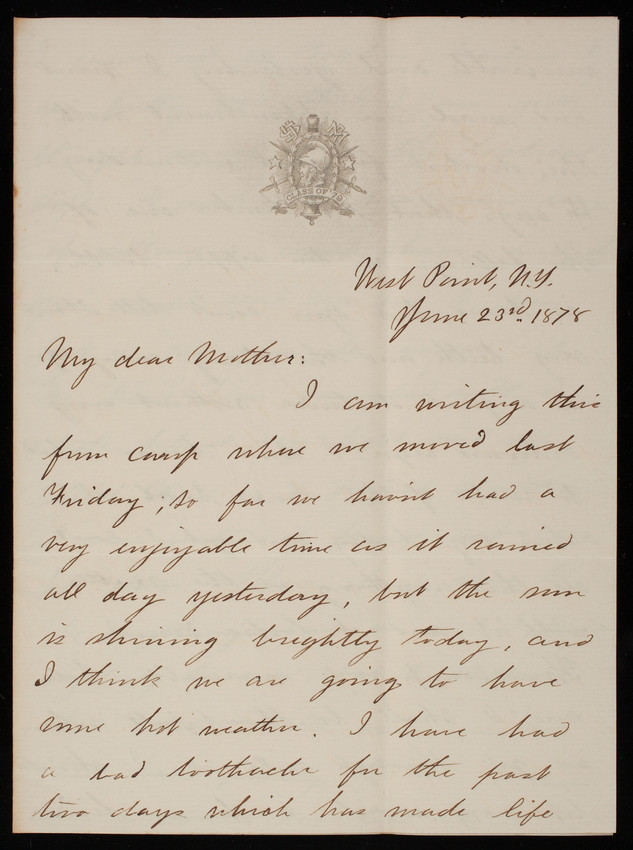 US MA
CLASS OF 79
West Point, N.Y.
June 23rd 1878
My dear Mother:
I am writing this
from camp where we moved last
Friday; so far we havnt had a
very enjoyable time as it rained
all day yesterday, but the sun
is shining brightly today, and
I think we are going to have
some hot weather. I have had
a bad toothache for the past
two days which has made life